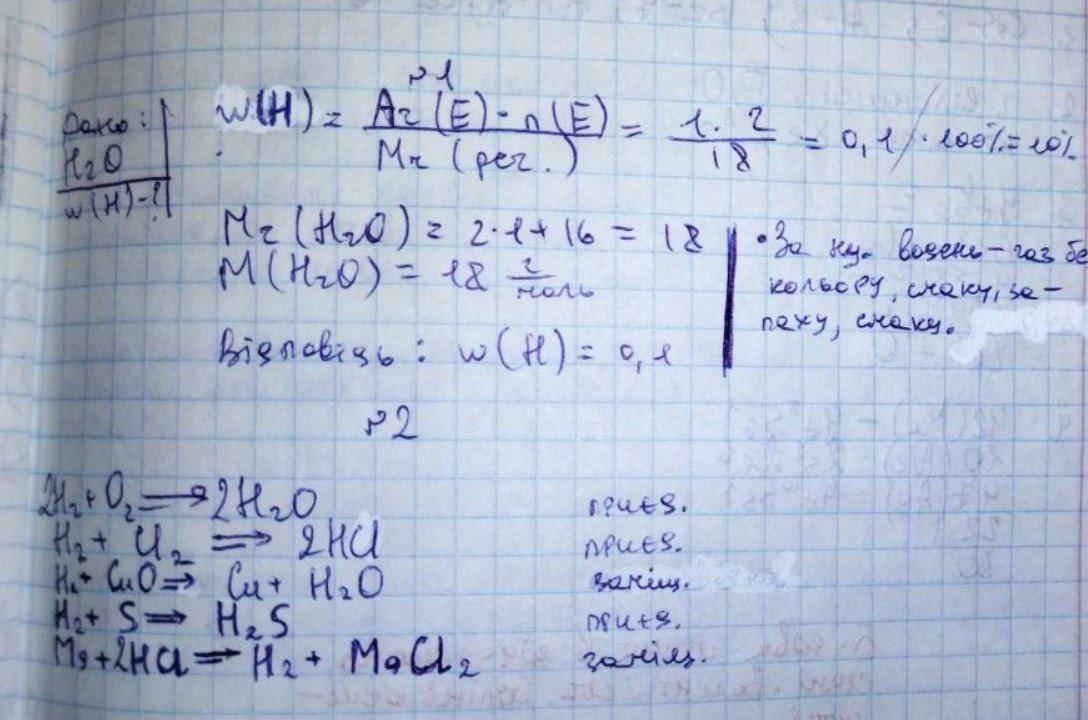 №1
Дано:
H₂O
w(H)-?
w(H) = Ar(E)·n(E) / Mr(реч.) = 1·2 / 18 = 0,1 / ·100% = 10%
Mr(H₂O) = 2·1+16 = 18
M(H₂O) = 18 г/моль
Відповідь: w(H) = 0,1
•За н.у. водень – газ бе
кольору, смаку, за-
паху, смаку.
№2
2H₂+O₂ ⟹ 2H₂O приєд.
H₂ + Cl₂ ⟹ 2HCl приєд.
H₂+ CuO ⟹ Cu + H₂O заміщ.
H₂ + S ⟹ H₂S приєд.
Mg+2HCl ⟹ H₂ + MgCl₂ заміщ.